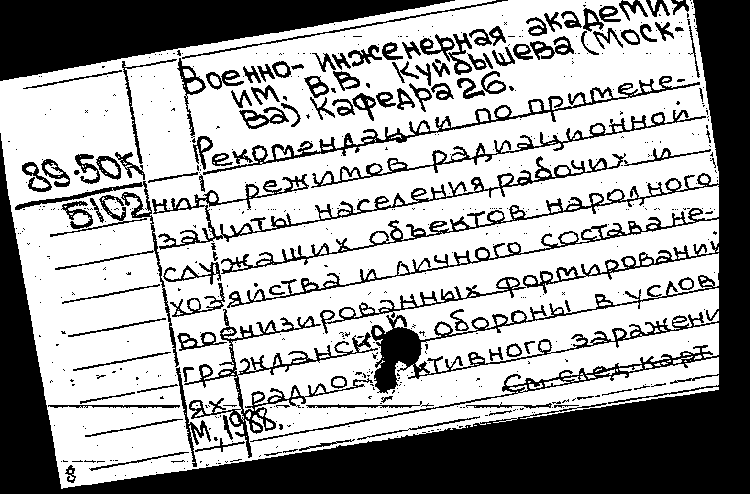 Военно-инженерная академия
им. В.В. Куйбышева (Моск-
ва). Кафедра 26.
Рекомендации по примене-
89.50К
5102
нию режимов радиационной
защиты населения, рабочих и
служащих объектов народного
хозяйства и личного состава не-
военизированных формирований
гражданской обороны в услови
ях радиоактивного заражени
См. след. карт
М., 1988.
8